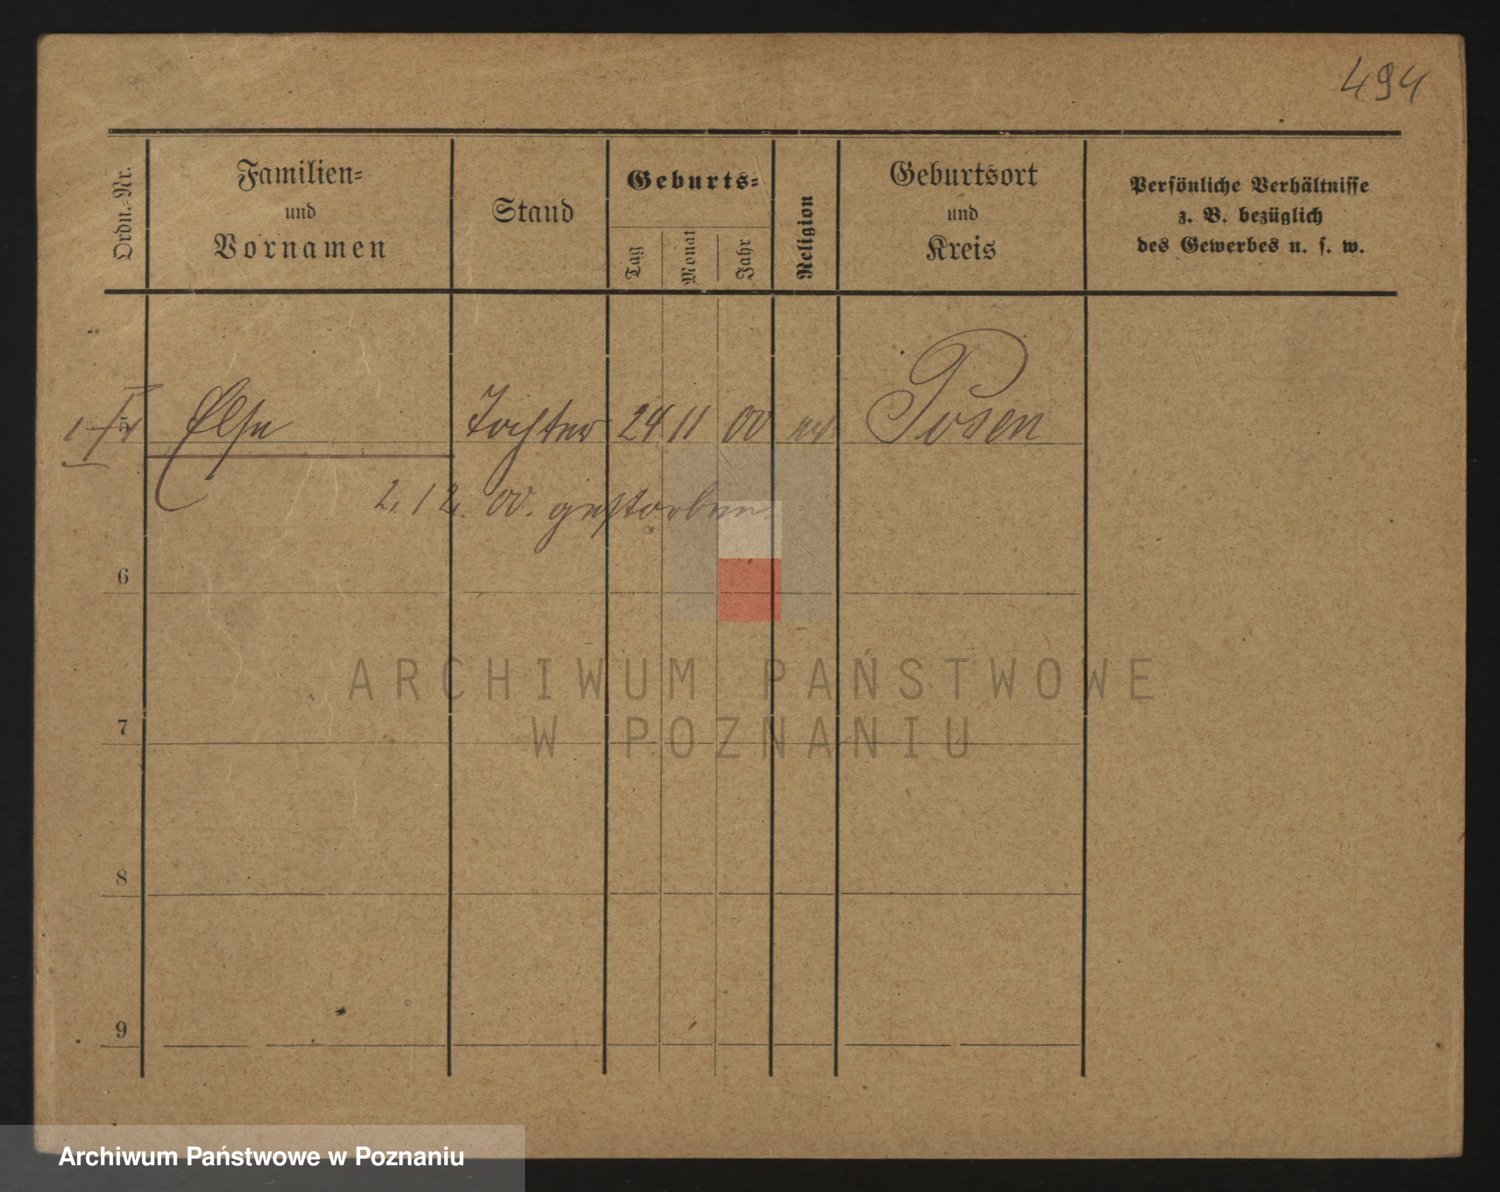 494
Ordn.-Nr.
Familien-
und
Vornamen
Stand
Geburts-
Tag
Monat
Jahr
Religion
Geburtsort
und
Kreis
Persönliche Verhältnisse
z. B. bezüglich
des Gewerbes u. s. w.
5 Else Tochter 24 11 00 Posen
2. 12. 00. gestorben.
6
7
8
9
ARCHIWUM PAŃSTWOWE
W POZNANIU
Archiwum Państwowe w Poznaniu